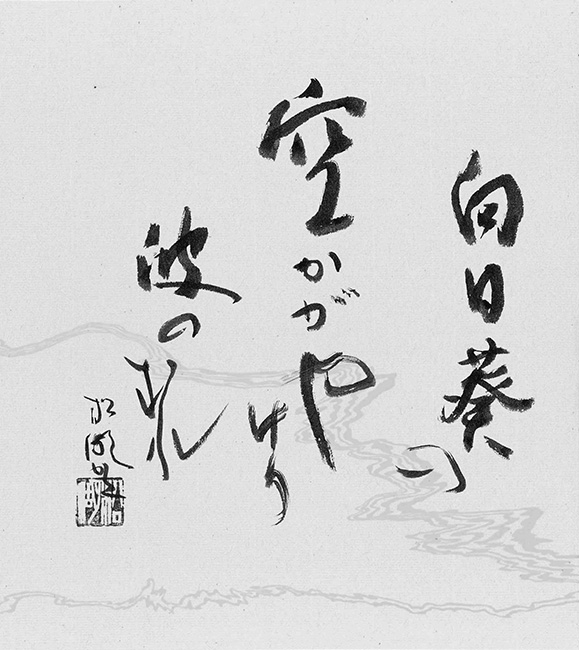 向日葵の
空かがやけり
波のむれ